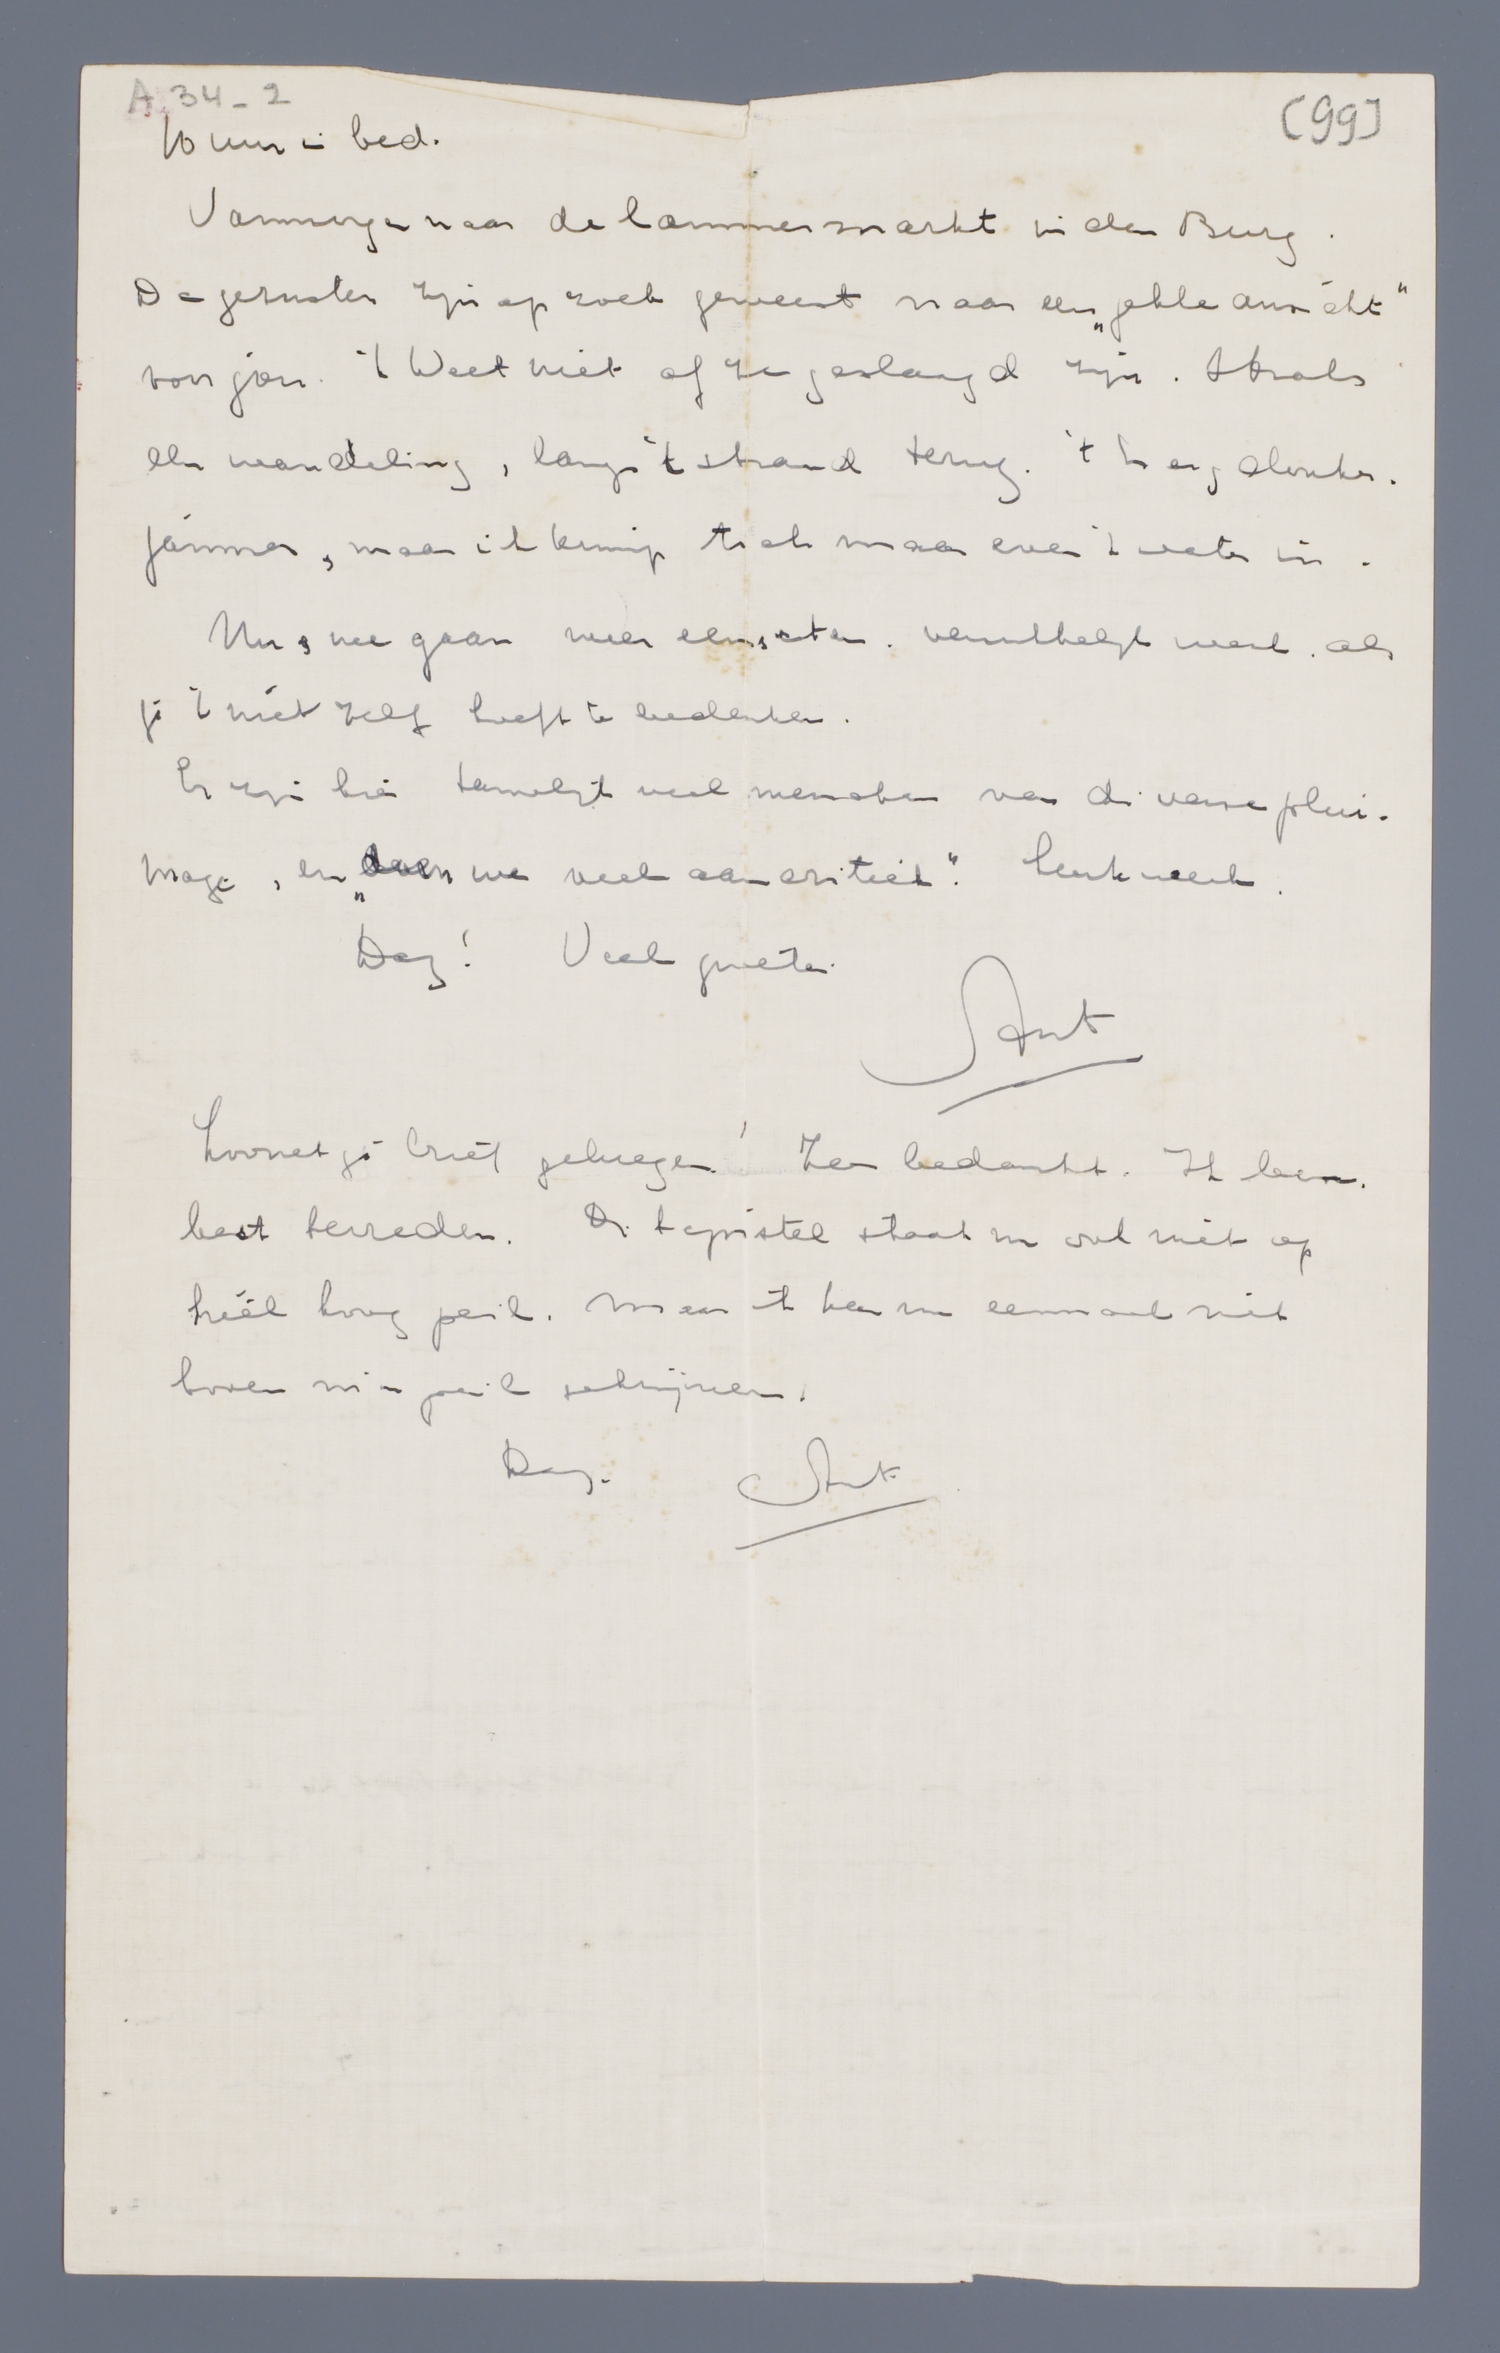 A 34-2
[99]
10 uur in bed.
Vanmorgen naar de lammermarkt in den Burg.
De zijn op zoek geweest naar een „gekke ansicht"
voor jou. 'k Weet niet of ze geslaagd zijn. Straks
een wandeling, langs 't strand terug. 't Is erg donker.
jammer, maar ik kruip toch maar even 't water in.
Nu, we gaan weer eens eten. verrukkelijk werk. als
je 't niet zelf hoeft te bedenken.
Er zijn hier tamelijk veel menschen van diverse plui-
mage, en „doen we veel aan critiek". Leuk werk.
Dag! Veel groeten.
Ant
Zoonet je brief gekregen! Zeer bedankt. Ik ben
best tevreden. De epistel staat nu ook niet op
héél hoog peil. Maar ik kan nu eenmaal niet
boven mijn peil schrijven.
Dag. Ant